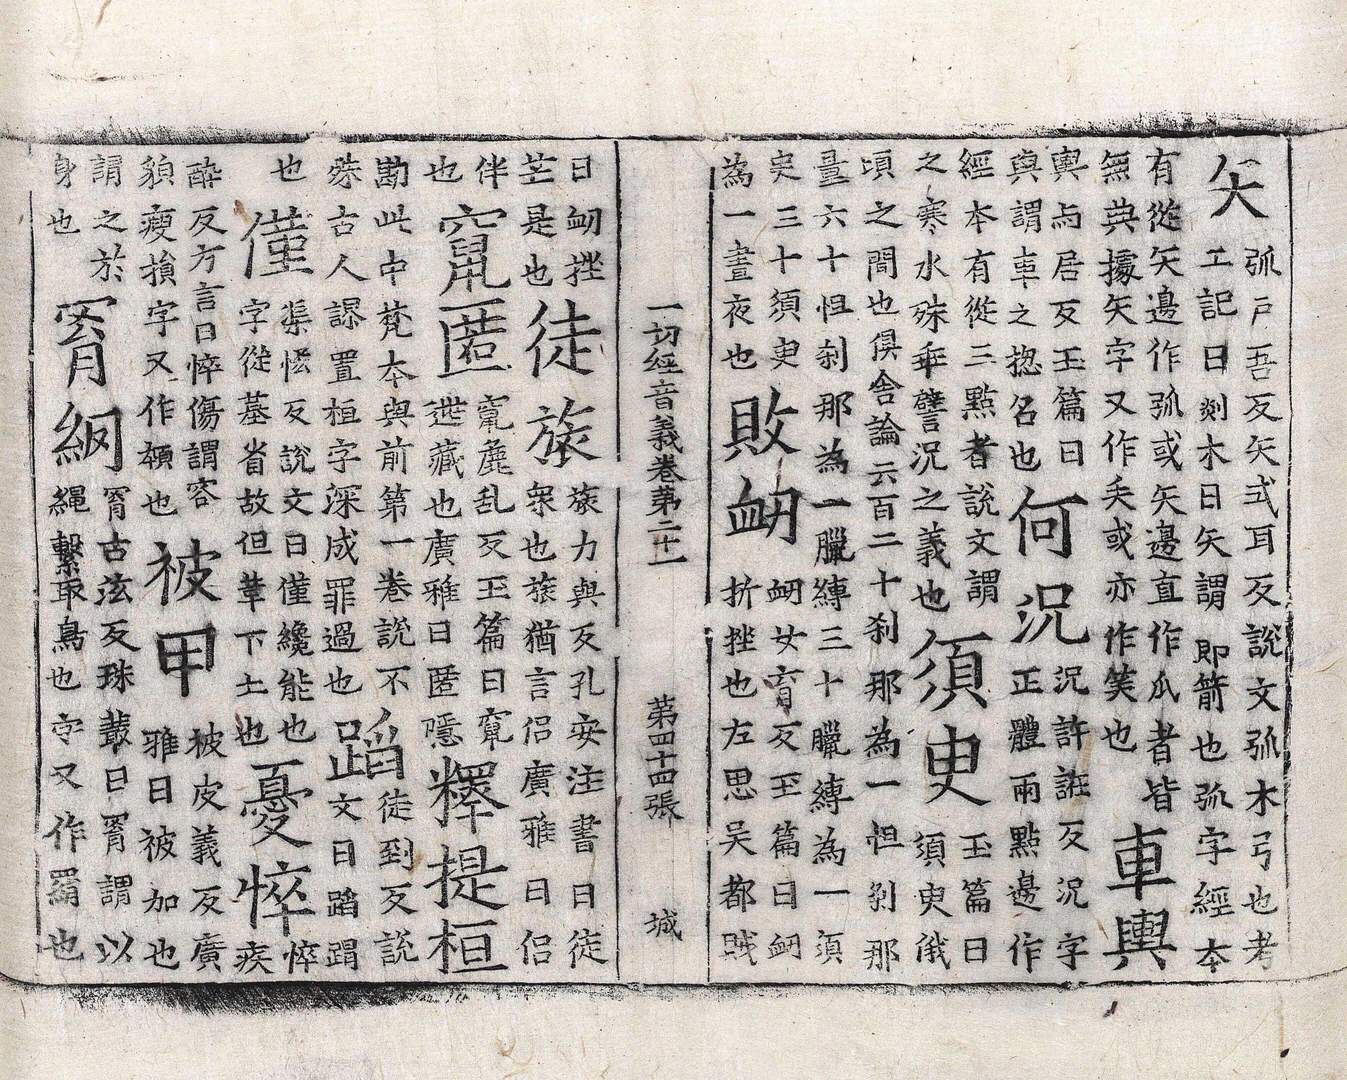 矢
弧戶吾反矢式耳反說文弧木弓也考
工記曰剡木曰矢謂即箭也弧字經本
有從矢邊作弧或矢邊直作瓜者皆
無典據矢字又作𠂕或亦作笑也
車輿
輿与居反玉篇曰
輿謂車之摠名也
何況
況許誑反況字
正體兩點邊作
經本有從三點者說文謂
之寒水殊乖譬況之義也
須臾
玉篇曰
須臾俄
頃之間也俱舍論云百二十刹那為一怛刹那
量六十怛刹那為一臘縛三十臘縛為一須
臾三十須臾
為一晝夜也
敗衂
衂女育反玉篇曰衂
折挫也左思吳都賊
一切經音義卷第二十一 第四十四張 城
曰衂挫
芒是也
徒旅
旅力與反孔安注書曰徒
衆也旅猶言侶廣雅曰侶
伴
也
竄匿
竄麁乱反玉篇曰竄
迯藏也廣雅曰匿隱
釋提桓
勘此中梵本與前第一卷說不
殊古人謬置桓字深成罪過也
蹈
徒到反說
文曰蹈謂
也
僅
渠恡反說文曰僅纔能也
字從墓省故但堇下土也
憂悴
悴
疾
醉反方言曰悴傷謂容
貌瘦損字又作顇也
被甲
被皮義反廣
雅曰被加也
謂之於
身也
罥網
罥古泫反珠叢曰罥謂以
繩繫取鳥也字又作羂也